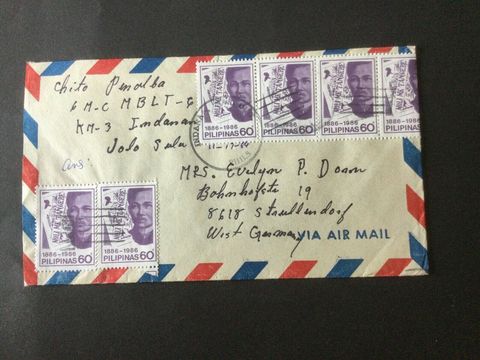 Chito Penalba
6 M-C MBLT-6
KM-3 Indanan
Jolo Sulu
ans:
NOLI ME TANGERE
1886-1986
PILIPINAS 60
1886-1986
PILIPINAS 60
1886-1986
PILIPINAS 60
1886-1986
PILIPINAS 60
MRS. Evelyn P. Dorn
Bahnhofstr 19
8618 Strullendorf
West Germany
VIA AIR MAIL
1886-1986
PILIPINAS 60
1886-1986
PILIPINAS 60